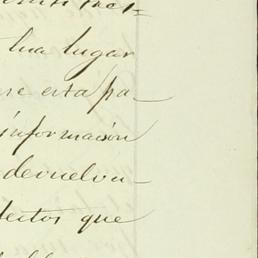 tua lugar
re esta pa-
información
devuelvu-
fectos que